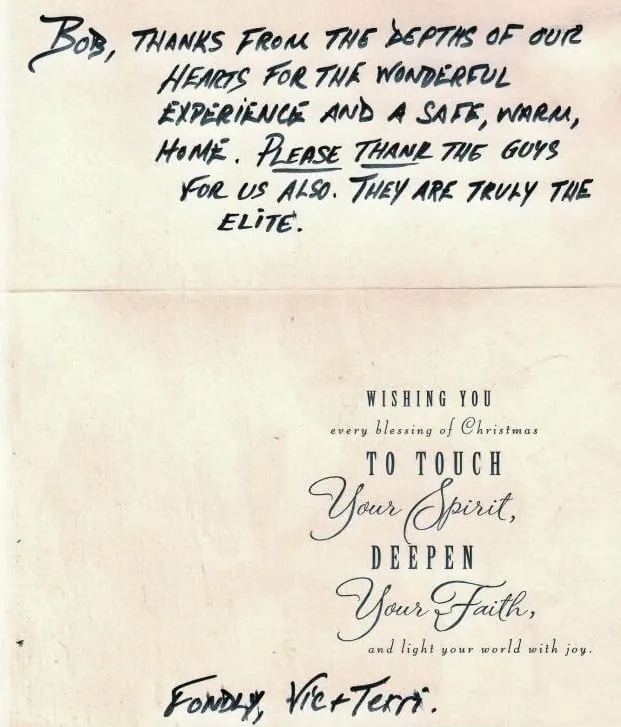 BOB, THANKS FROM THE DEPTHS OF OUR
HEARTS FOR THE WONDERFUL
EXPERIENCE AND A SAFE, WARM,
HOME. PLEASE THANK THE GUYS
FOR US ALSO. THEY ARE TRULY THE
ELITE.
WISHING YOU
every blessing of Christmas
TO TOUCH
Your Spirit,
DEEPEN
Your Faith,
and light your world with joy.
FONDLY, Vic + Terri.